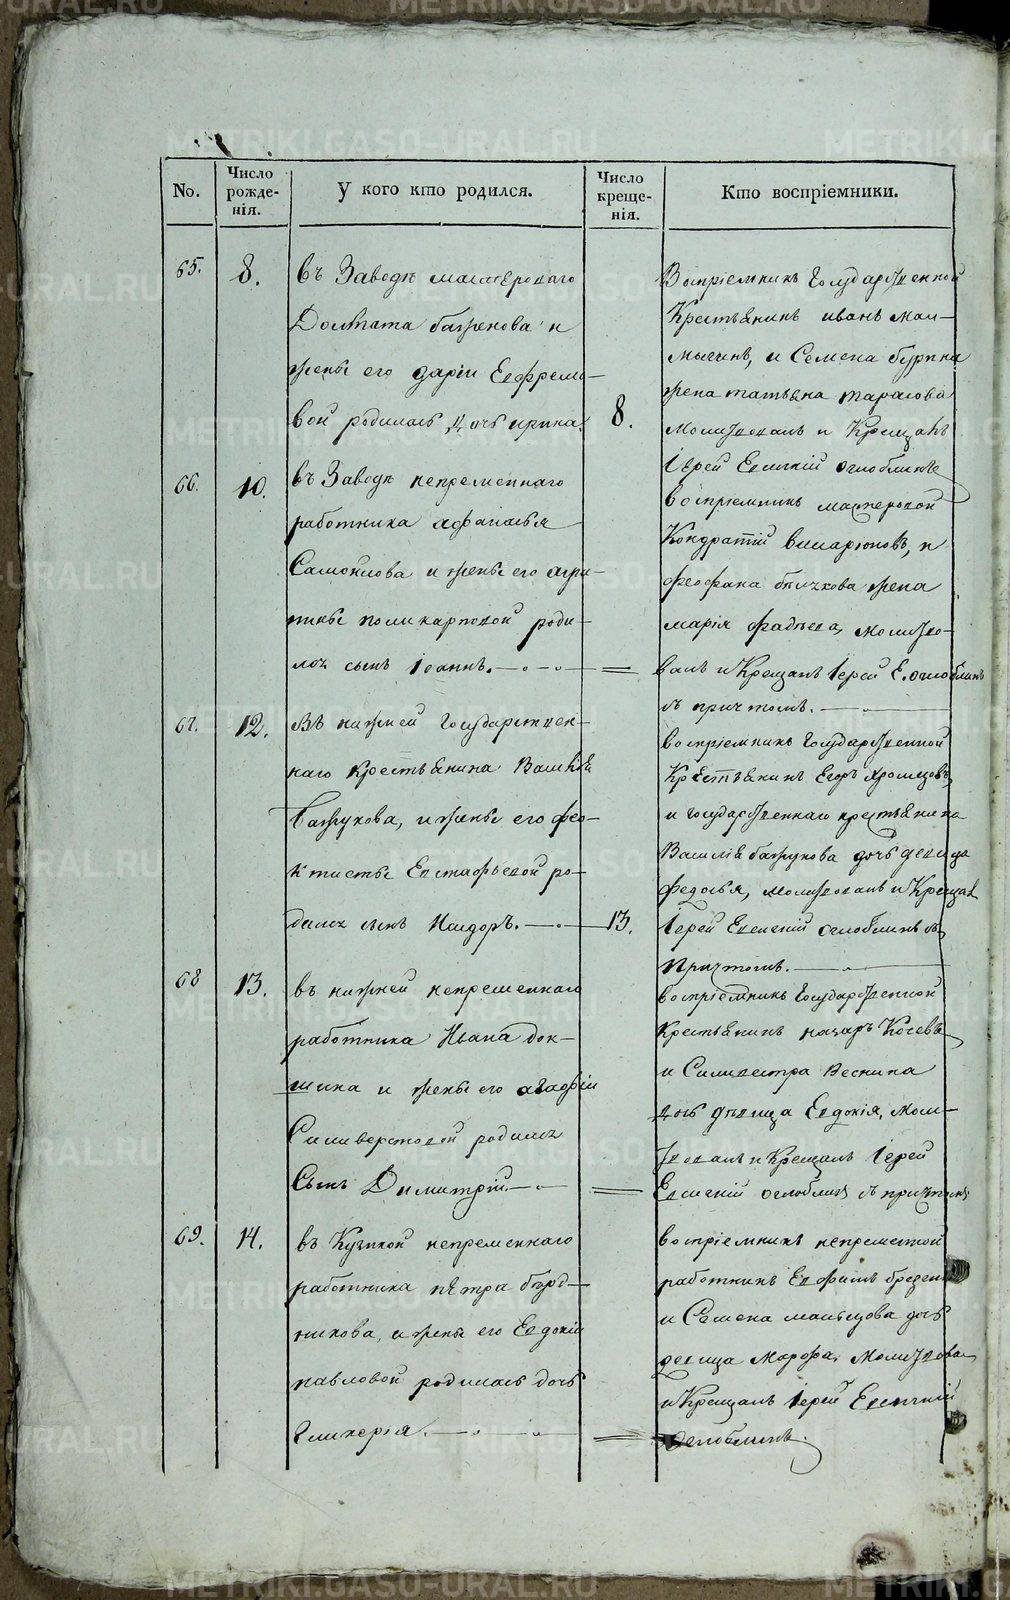 No.
Число рожде-нія.
У кого кто родился.
Число креще-нія.
Кто воспріемники.
65.
8.
въ Заводѣ мастероваго
Долмата бажѣнова и
жены его даріи Евфремо-
вой родилась дочь ирина.
8.
Воспріемникъ Государственной
Крестьянинъ иванъ
и Семена бурина
жена татьяна тарасова
Молитвовалъ и Крещалъ
Іерей Евгеній оглоблинъ
66.
10.
въ Заводѣ непременнаго
работника афанасья
Самойлова и жены его агри-
пины поликарповой роди-
лся сынъ Іоаннъ.
воспріемникъ мастеровой
Кондратій иларіоновъ, и
феофана бычкова жена
марія фадѣева, молитво-
валъ и Крещалъ Іерей Е. оглоблинъ
съ причтомъ.
67.
12.
Въ нижней Государствен-
наго крестьянина Василья
Бажукова, и жены его фео-
ктисты Евстафьевой ро-
дился сынъ Исидоръ.
13.
воспріемникъ Государственной
Крестьянинъ Егоръ
и государственнаго крестьянина
Василія бажукова дочь девица
федосья, молитвовалъ и Крещалъ
Іерей Евгеній оглоблинъ съ
причтомъ.
68
13.
въ нижней непременнаго
работника Ивана док-
шина и жены его агафіи
Сильверстовой родился
Сынъ Димитрій.
воспріемникъ Государственной
крестьянинъ назаръ Когевъ
и Сильвестра Веснина
дочь дѣвица Евдокія, моли-
твовалъ и Крещалъ Іерей
Евгеній оглоблинъ съ причтомъ
69.
14.
въ Кузиной непременнаго
работника пѣтра бурд-
никова, и жены его Евдокіи
павловой родилась дочь
Гликерія.
воспріемникъ непременной
работникъ Евфимъ
и Семена мальцова дочь
девица Марфа. Молитвовалъ
и Крещалъ Іерей Евгеній
Оглоблинъ.
METRIKI.GASO-URAL.RU